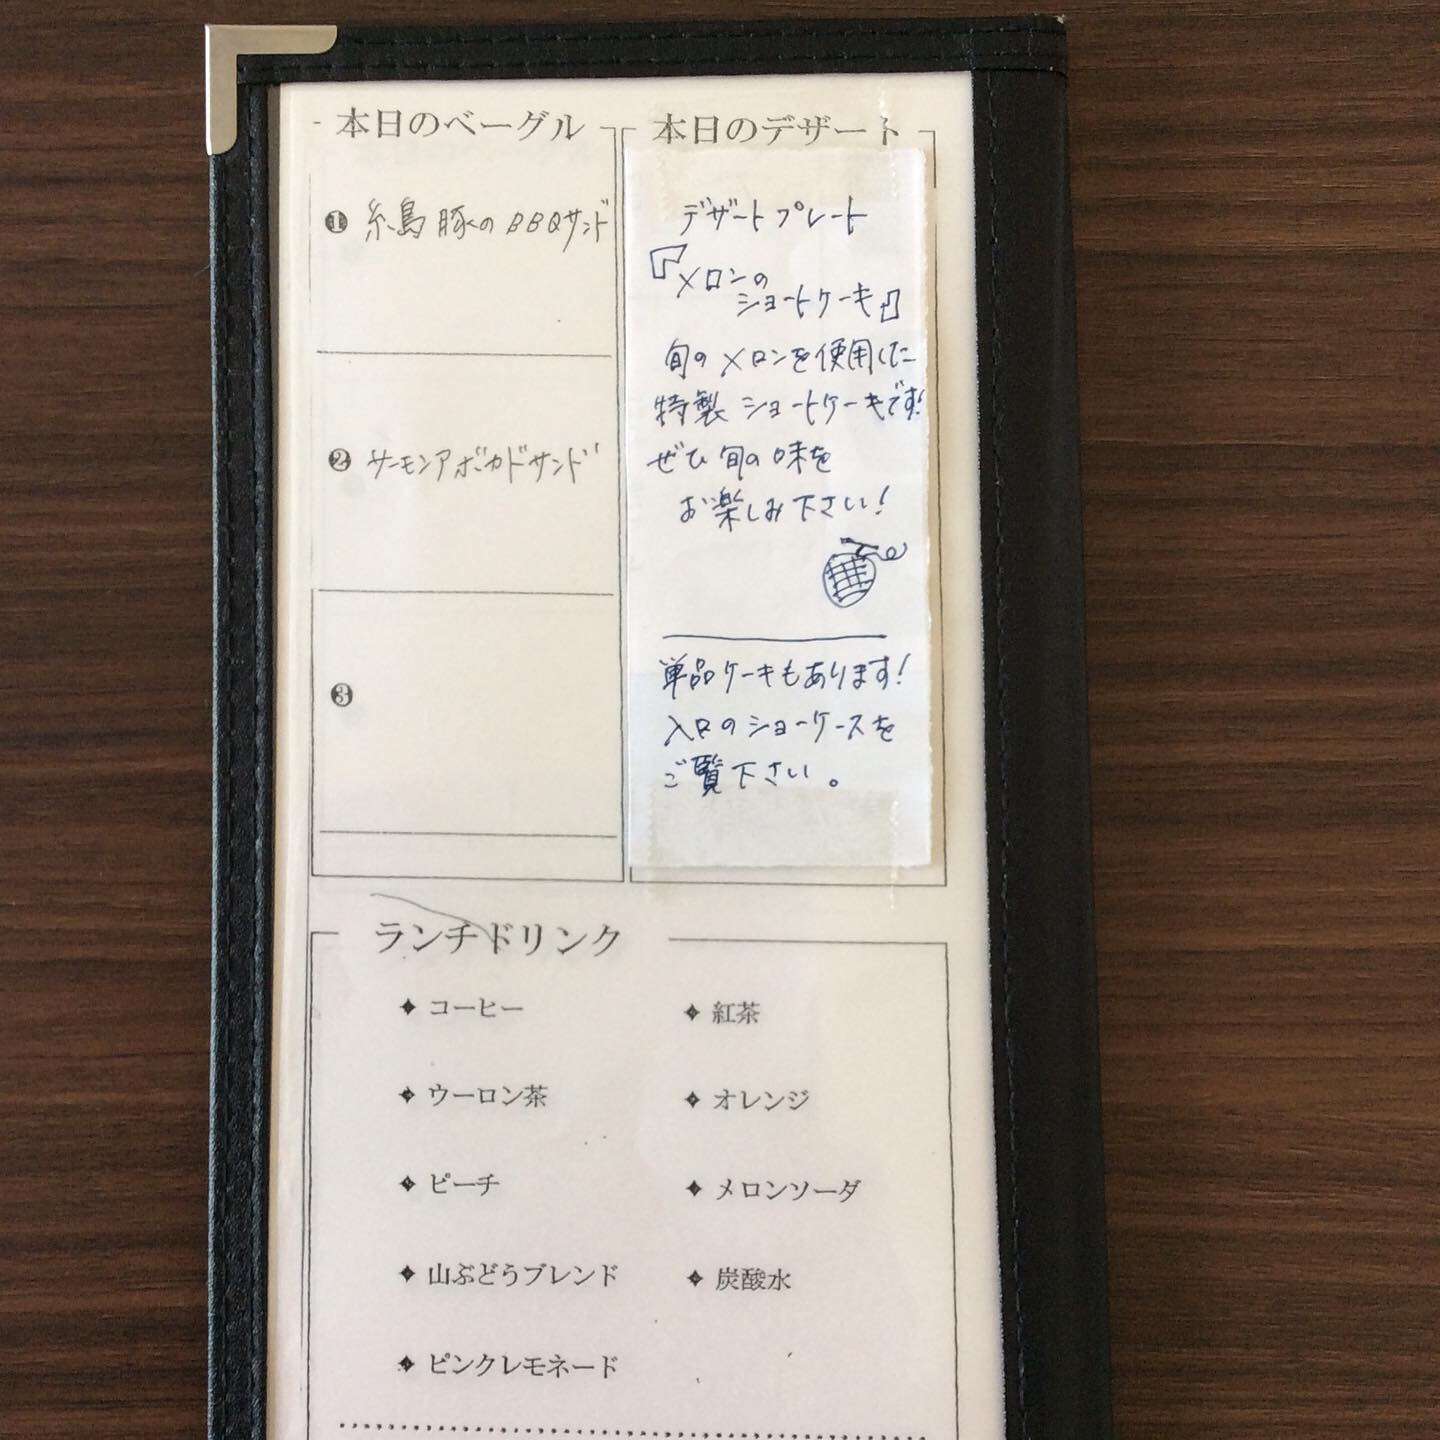 本日のベーグル
❶ 糸島豚のBBQサンド
❷ サーモンアボカドサンド
❸
本日のデザート
デザートプレート
『メロンの
ショートケーキ』
旬のメロンを使用した
特製ショートケーキです!
ぜひ旬の味を
お楽しみ下さい!
単品ケーキもあります!
入口のショーケースを
ご覧下さい。
ランチドリンク
コーヒー
紅茶
ウーロン茶
オレンジ
ピーチ
メロンソーダ
山ぶどうブレンド
炭酸水
ピンクレモネード